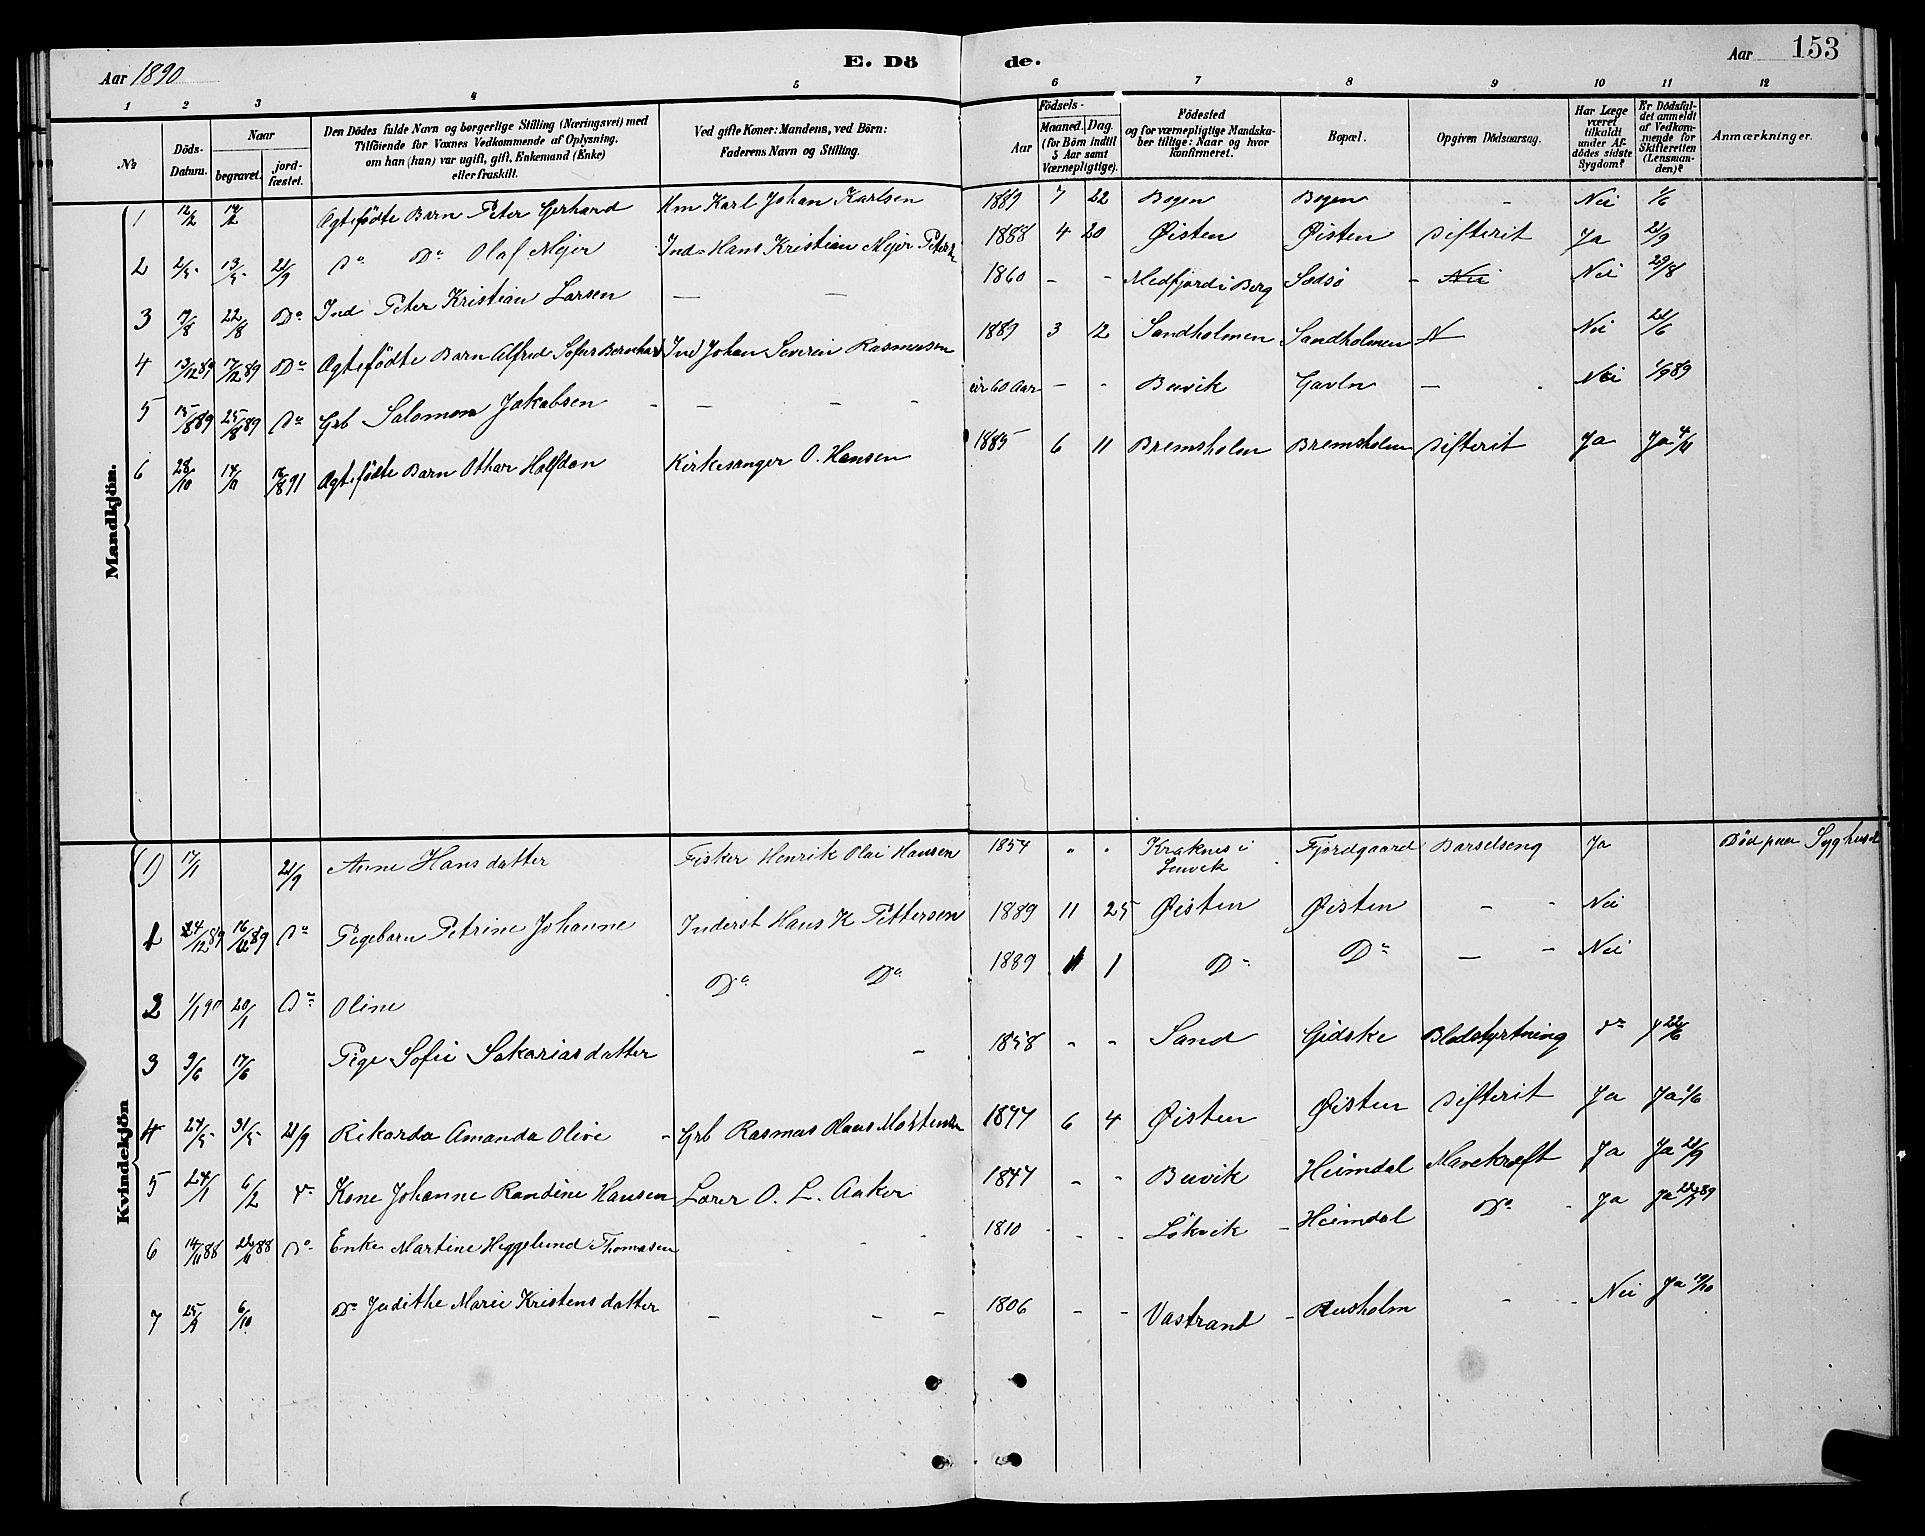 Aar 1890 E. Dö de. Aar 153
1 2 3 4 5 6 7 8 9 10 11 12
№ Döds-Datum. Naar begravet. jord-fæstet. Den Dödes fulde Navn og borgerlige Stilling (Næringsvei) med Tilföiende for Voxnes Vedkommende af Oplysning, om han (hun) var ugift, gift, Enkemand (Enke) eller fraskilt. Ved gifte Koner: Mandens, ved Börn: Faderens Navn og Stilling. Födsels- Aar Maaned. Dag. (for Börn indtil 5 Aar samt Værnepligtige). Födested og for værnepligtige Mandskaber tillige: Naar og hvor konfirmeret. Bopæl. Opgiven Dödsaarsag. Har Læge været tilkaldt under Afdödes sidste Sygdom? Er Dödsfaldet anmeldt af Vedkommende for Skifteretten (Lensmanden)? Anmærkninger.
Mandkjön.
1 12/2 14/2 Ægtefødte Barn Peter Gerhard Hm Karl Johan Karlsen 1889 7 22 Bogen Bogen - Nei 1/6
2 2/5 13/5 21/9 Do Do Olaf Mejer Ind- Hans Kristian Mejer Peters 1888 4 20 Øisten Øisten Difterit Ja 21/9
3 17/8 22/8 Do Ind Peter Kristian Larsen — - 1860 - - Medfjord i Berg Sødsø - Nei Nei 29/8
4 13/12 89 17/12 89 Do Ægtefødte Barn Alfred Sofus Bernhard Ind Johan Severin Rasmussen 1889 3 12 Sandholmen Sandholmen N Nei 21/6
5 15/8 89 25/8 89 Do Grb Salomon Jakobsen - - - - cir 60 Aar - - Buvik Gavln - Nei 1/9 89
6 28/10 14/11 16/8 91 Ægtefødte Barn Othar Halfdan Kirkesanger O. Hansen 1885 6 11 Bremsholm Bremsholm Difterit Ja Ja 4/11
Kvindekjön
(1) 17/1 21/9 Anne Hansdatter Fisker Henrik Olai Hansen 1854 " " Kraknes i Lenvik Fjordgaard Barselseng Ja Død paa Syghuset
1 24/12 89 16/12 89 Do Pigebarn Petrine Johanne Inderst Hans K Pettersen 1889 11 25 Øisten Øisten - - Nei
2 1/1 90 20/1 Do Oline Do Do 1889 11 1 Do Do - - Nei
3 9/6 17/6 Pige Sofie Sakariasdatter - 1858 - - Sand Gidske Blodstyrtning Do J 22/6
4 24/5 31/5 21/9 Rikarda Amanda Olive - Grb Rasmus Hans Mortensen 1877 6 4 Øisten Øisten Difterit Ja Ja 1/6
5 24/1 6/2 Do Kone Johanne Randine Hansen Lærer O. L. Aaker 1847 - - Buvik Heimdal Mavekræft Ja Ja 21/9
6 14/11 88 22/11 88 Do Enke Martine Heggelund Thomasen 1810 - - Lökvik - Heimdal Do - Ja Ja 22/7 89
7 25/9 6/10 Do Judithe Marie Kristensdatter - - - 1806 - - Vastrand - Rusholm - - Nei Ja 19/10